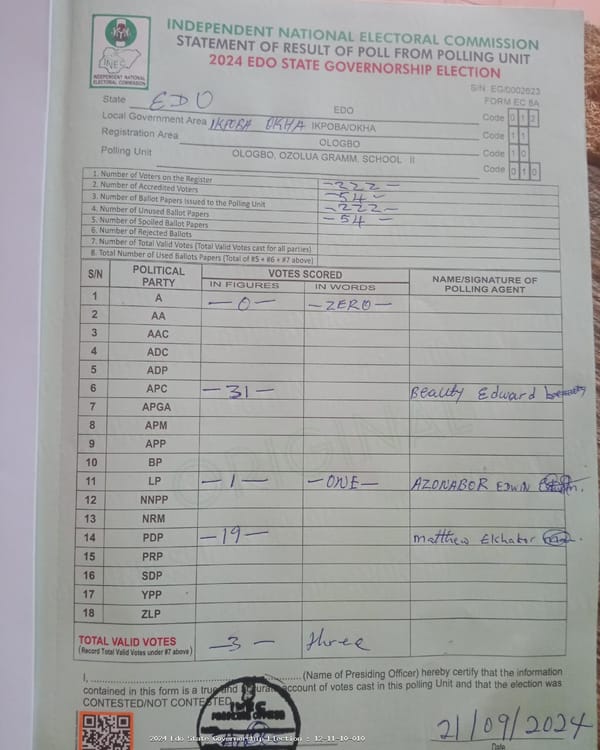 INEC
INDEPENDENT NATIONAL
ELECTORAL COMMISSION
INDEPENDENT NATIONAL ELECTORAL COMMISSION
STATEMENT OF RESULT OF POLL FROM POLLING UNIT
2024 EDO STATE GOVERNORSHIP ELECTION
S/N EG/0002623
FORM EC 8A
State EDO EDO
Local Government Area IKPOBA OKHA IKPOBA/OKHA Code 0 1 2
Registration Area OLOGBO Code 1 1
Polling Unit OLOGBO, OZOLUA GRAMM. SCHOOL II Code 1 0
Code 0 1 0
1. Number of Voters on the Register -222-
2. Number of Accredited Voters -54-
3. Number of Ballot Papers Issued to the Polling Unit -222-
4. Number of Unused Ballot Papers -54-
5. Number of Spoiled Ballot Papers
6. Number of Rejected Ballots
7. Number of Total Valid Votes (Total Valid Votes cast for all parties)
8. Total Number of Used Ballots Papers (Total of #5 + #6 + #7 above)
S/N POLITICAL PARTY VOTES SCORED NAME/SIGNATURE OF POLLING AGENT
IN FIGURES IN WORDS
1 A -0- -ZERO-
2 AA
3 AAC
4 ADC
5 ADP
6 APC -31- Beauty Edward
7 APGA
8 APM
9 APP
10 BP
11 LP -1- -ONE- AZONABOR EDWIN
12 NNPP
13 NRM
14 PDP -19- Matthew
15 PRP
16 SDP
17 YPP
18 ZLP
TOTAL VALID VOTES -3- three
(Record Total Valid Votes under #7 above)
ORIGINAL
I, (Name of Presiding Officer) hereby certify that the information
contained in this form is a true and account of votes cast in this polling Unit and that the election was
CONTESTED/NOT CONTESTED
21/09/2024
Date
2024 Edo State Governorship Election : 12-11-10-010